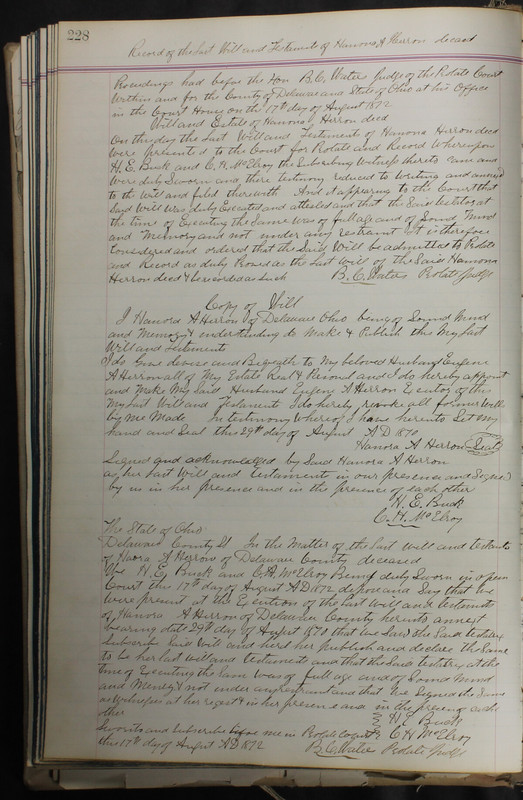 228
Record of the Last Will and Testament of Hanora A Herron deceased
Proceedings had before the Hon B.C. Waters Judge of the Probate Court
Within and for the County of Delaware and State of Ohio at his Office
in the Court House on the 17th day of August 1872
Will and Estate of Hanora A Herron decd
On this day the Last Will and Testament of Hanora Herron decd
were presented to the Court for Probate and Record whereupon
H. E. Buck and C. H. McElroy the Subscribing Witness thereto came and
were duly Sworn and there testimony reduced to writing and annexed
to the Will and filed therewith And it appearing to the Court that
Said Will was duly Executed and attested and that the Said testator at
the time of Executing the Same was of full age and of Sound Mind
and Memory and not under any restraint it is therefore
Considered and ordered that the Said Will be admitted to Probate
and Record as duly Proved as the Last Will of the Said Hanora
Herron decd & be recorded as Such
B. C. Waters Probate Judge
Copy of Will
I Hanora A Herron of Delaware Ohio being of Sound Mind
and Memory & understanding do Make & Publish this My Last
Will and Testament
I do Give devise and Bequeath to My beloved Husband Eugene
A Herron all of My Estate Real & Personal and I do hereby appoint
and Make My Said Husband Eugene A Herron Executor of this
My Last Will and Testament I do hereby revoke all former Wills
by me Made In testimony Whereof I have hereunto Set My
hand and Seal this 29th day of August A D 1870
Hanora A Herron Seal
Signed and acknowledged by Said Hanora A Herron
as her Last Will and testament in our presence and Signed
by us in her presence and in the presence of each other
H. E. Buck
C. H. McElroy
The State of Ohio
Delaware County SS In the Matter of the Last Will and testament
of Hanora A Herron of Delaware County deceased
We H. E. Buck and C. H. McElroy Being duly Sworn in open
Court this 17th day of August A D 1872 depose and Say that we
were present at the Execution of the Last Will and testament
of Hanora A Herron of Delaware County hereunto annexed
bearing date 29th day of August 1870 that we Saw the Said testatrix
Subscribe Said Will and heard her publish and declare the Same
to be her last Will and testament and that the Said testatrix at the
time of Executing the Same was of full age and of Sound Mind
and Memory & not under any restraint and that we Signed the Same
as Witnesses at her request & in her presence and in the presence of each
other
H. E. Buck
C H McElroy
Sworn to and Subscribed before me in Probate Court
this 17th day of August A D 1872
B. C. Waters Probate Judge